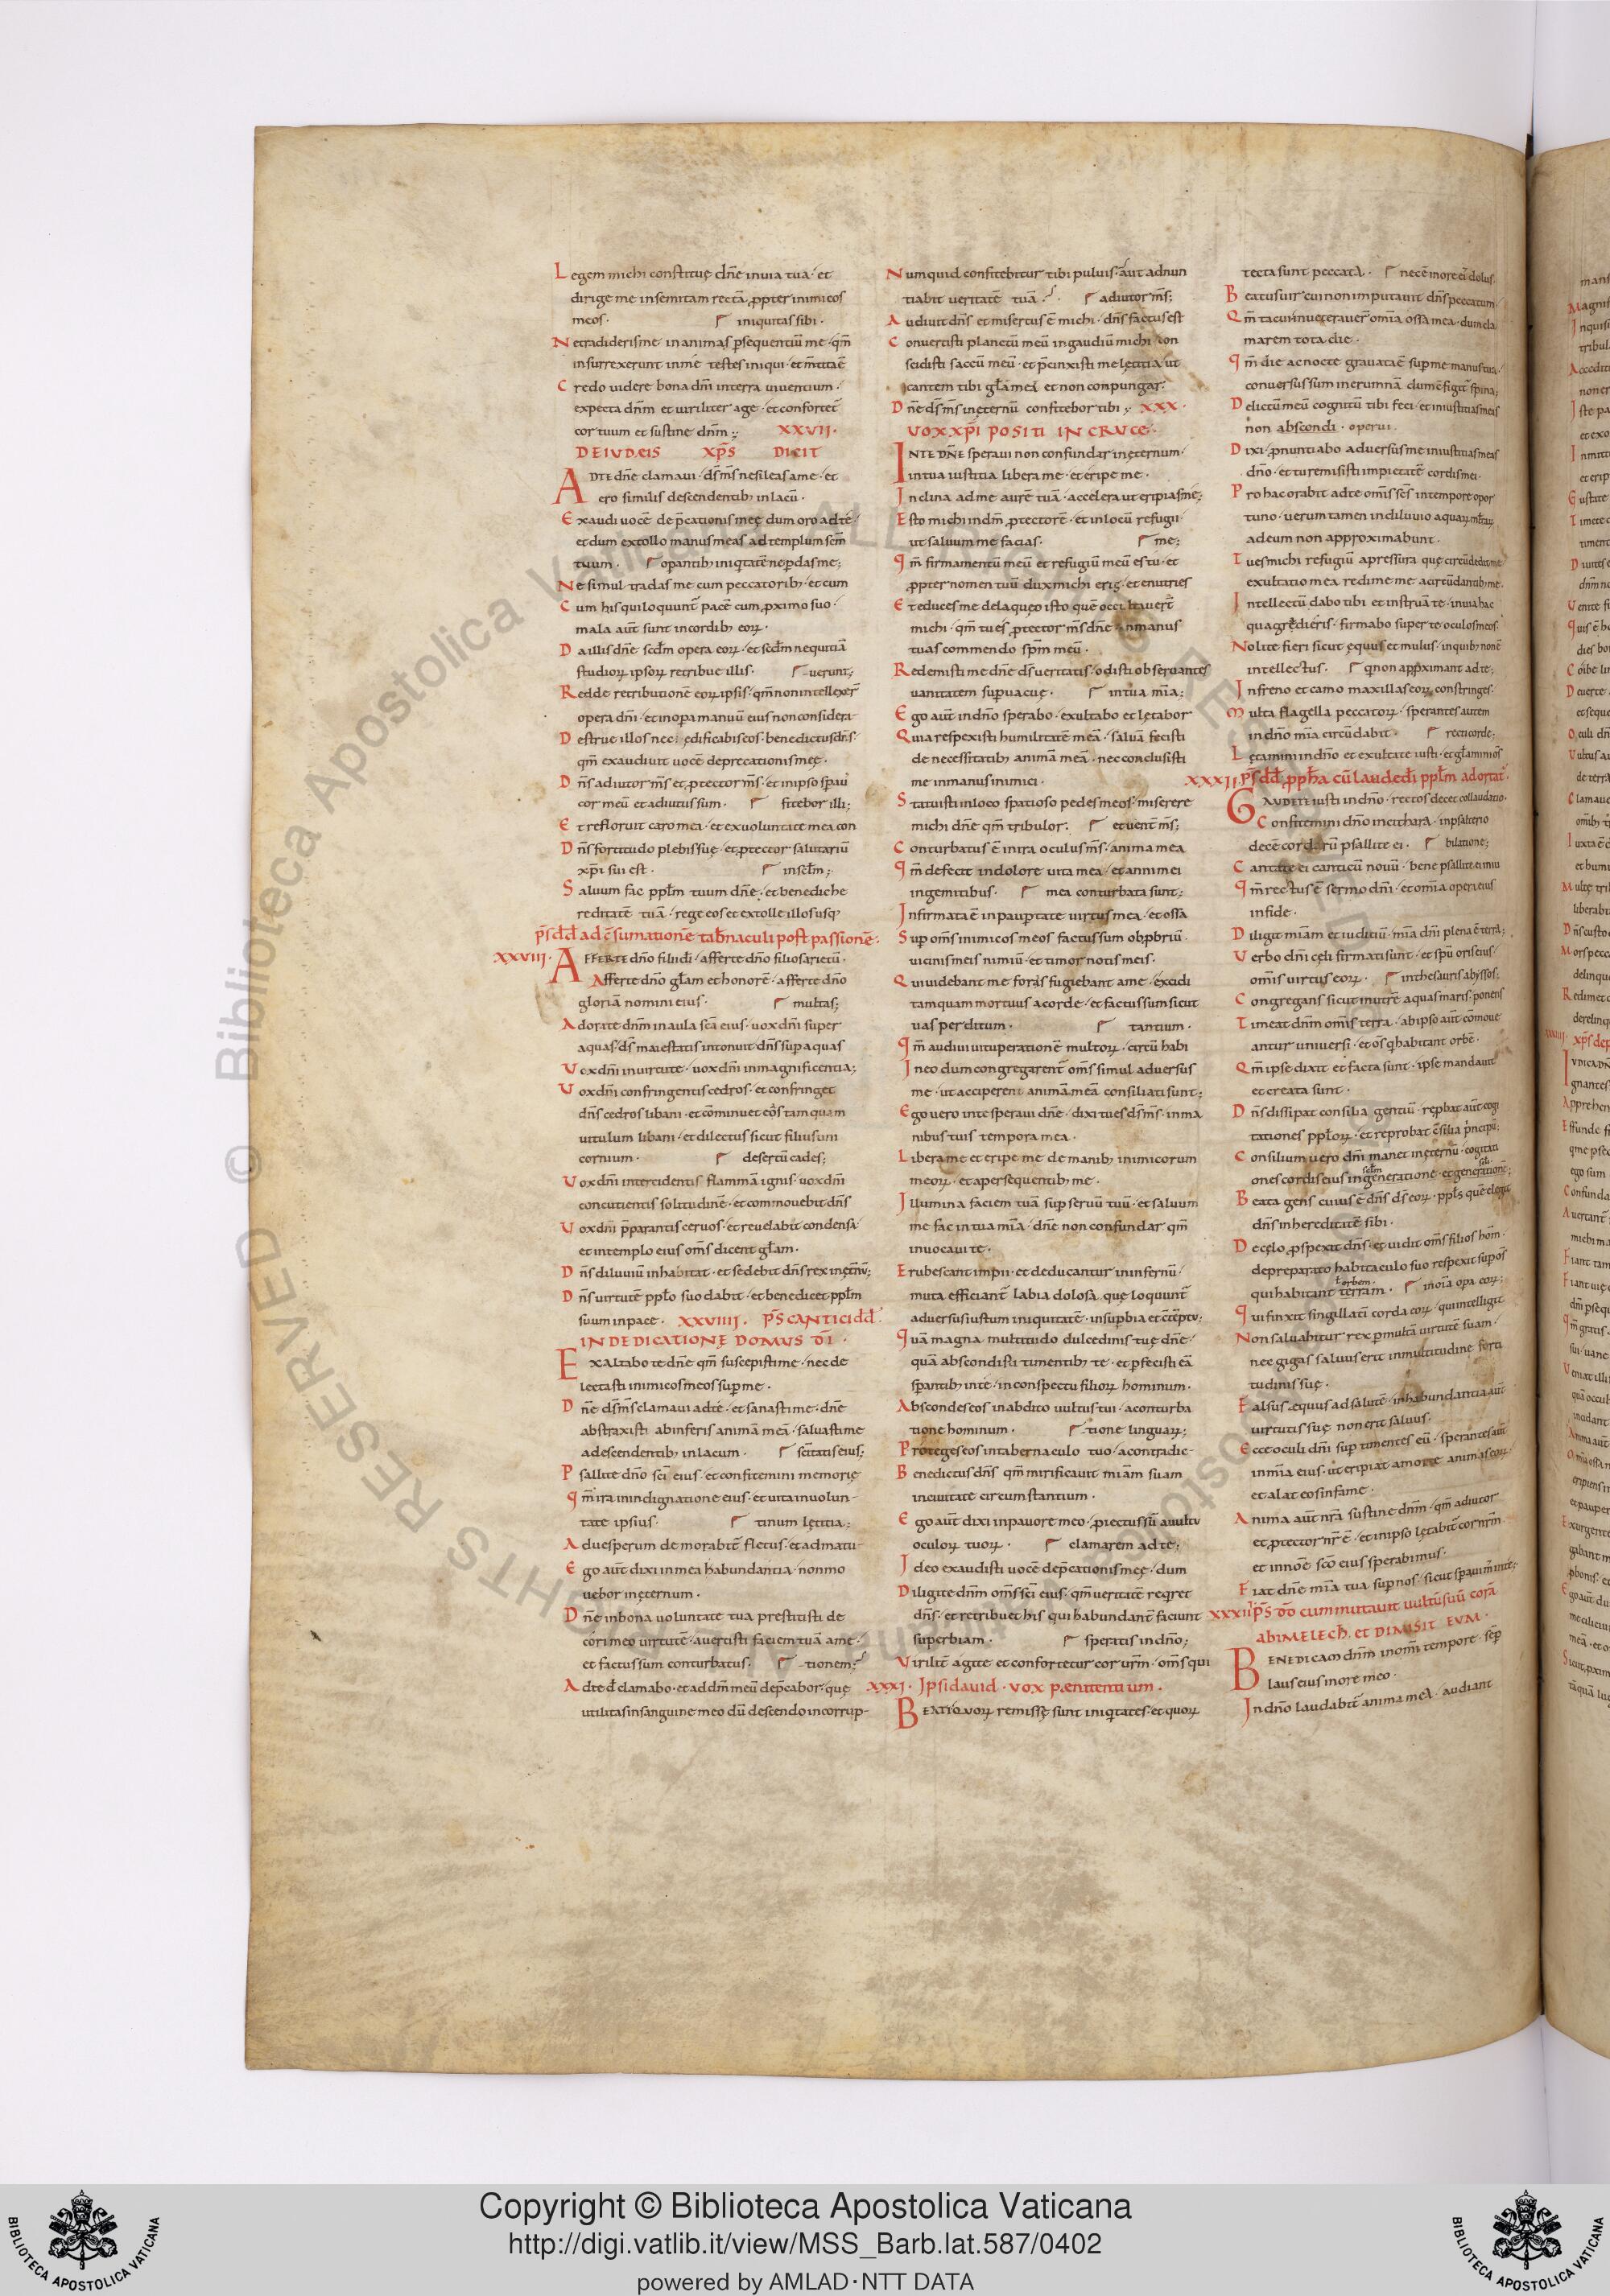 Legem michi constitue dñe in uia tua · et
dirige me in semitam rectã ꝓpter inimicos
meos · iniquitas sibi ·
Ne tradideris me in animas ꝑsequentiũ me · qm̃
insurrexerunt in me testes iniqui · et m̃tita ẽ
Credo uidere bona dñi in terra uiuentium ·
expecta dñm et uiriliter age · et confortet̃
cor tuum et sustine dñm ; XXVII ·
DE IUDEIS XPS DICIT
AD TE dñe clamaui · d̃s m̃s ne sileas a me · et
ero similis descendentib; in lacũ ·
Exaudi uocẽ dep̃cationis meę dum oro ad te ·
et dum extollo manus meas ad templum sc̃m
tuum · oꝑantib; iniq̃tatẽ ne ꝑdas me ;
Ne simul tradas me cum peccatorib; · et cum
Cum his qui loquunt̃ pacẽ cum ꝓximo suo ·
mala aut̃ sunt in cordib; eoꝝ ·
Da illis dñe sc̃dm opera eoꝝ · et sc̃dm nequitiã
studioꝝ ipsoꝝ retribue illis · uerunt ;
Redde retributionẽ eoꝝ ipsis · qm̃ non intellexer̃
opera dñi · et in oꝑa manuũ eius non considera-
Destrue illos nec ędificabis eos · benedictus dñs ·
qm̃ exaudiuit uocẽ deprecationis meę ·
Dñs adiutor m̃s et ꝓtector m̃s · et in ipso sꝑaui
cor meũ et adiutus sum · fitebor illi ;
Et refloruit caro mea · et ex uoluntate mea con
Dñs fortitudo plebis suę · et ꝓtector salutariũ
xp̃i sui est · in sc̃lm ;
Saluum fac ppl̃m tuum dñe · et benedic he
reditatẽ tuã · rege eos et extolle illos usq;
ps̃ dd̃ ad c̃sumationẽ tab̃naculi post passionẽ ·
XXVIII · AFFERTE dño filii di · afferte dño filios arietũ ·
Afferte dño gl̃am et honorẽ · afferte dño
gloriã nomini eius · multas ;
Adorate dñm in aula sc̃a eius · uox dñi super
aquas · d̃s maiestatis intonuit · dñs suꝑ aquas
Uox dñi in uirtute · uox dñi in magnificentia ;
Uox dñi confringentis cedros · et confringet
dñs cedros libani · et cõminuet eos tam quam
uitulum libani · et dilectus sicut filius uni
cornium · desertũ cades ;
Uox dñi intercidentis flammã ignis · uox dñi
concutientis solitudinẽ · et commouebit dñs
Uox dñi p̃parantis ceruos · et reuelabit condensa
et in templo eius oms̃ dicent gl̃am ·
Dñs diluuiũ inhabitat · et sedebit dñs rex in ęt̃nũ ;
Dñs uirtutẽ ppl̃o suo dabit · et benedicet ppl̃m
suum in pace · XXVIIII · PS̃ CANTICI dd̃
IN DEDICATIONE DOMUS D̃I ·
EXALTABO te dñe qm̃ suscepisti me · nec de
lectasti inimicos meos suꝑ me ·
Dñe d̃s m̃s clamaui ad te · et sanasti me · dñe
abstraxisti ab inferis animã meã · saluasti me
a descendentib; in lacum · sc̃itatis eius ;
Psallite dño sc̃i eius · et confitemini memorię
Qm̃ ira in indignatione eius · et uita in uolun-
tate ipsius · tinum lętitia ;
Ad uesperum demorabit̃ fletus · et ad matu-
Ego aut̃ dixi in mea habundantia · non mo
uebor in ęternum ·
Dñe in bona uoluntate tua prestitisti de
cori meo uirtutẽ · auertisti faciem tuã a me ·
et factus sum conturbatus · tionem ;
Ad te d̃ clamabo · et ad dm̃ meũ dep̃cabor · quę
utilitas in sanguine meo dũ descendo in corrup-
Numquid confitebitur tibi puluis · aut adnun
tiabit ueritatẽ tuã · adiutor m̃s ;
Audiuit dñs et misertus ẽ michi · dñs factus est
Conuertisti planctũ meũ in gaudiũ michi con
scidisti saccũ meũ · et p̃cinxisti me lętitia ut
cantem tibi gl̃a mea et non conpungar ·
Dñe d̃s m̃s in ęternũ confitebor tibi ; XXX ·
UOX XP̃I POSITI IN CRUCE ·
IN TE DÑE speraui non confundar in ęternum ·
in tua iustitia libera me · et eripe me ·
Inclina ad me aurẽ tuã · accelera ut eripias me ;
Esto michi in dm̃ ꝓtectorẽ · et in locũ refugii
ut saluum me facias · me ;
Qm̃ firmamentũ meũ et refugiũ meũ es tu · et
ꝓpter nomen tuũ dux michi eris · et enutries
Et educes me de laqueo isto quẽ occultauer̃t
michi · qm̃ tu es ꝓtector m̃s dñe in manus
tuas commendo sp̃m meũ ·
Redemisti me dñe d̃s ueritatis · odisti obseruantes
uanitatem suꝑuacuę · in tua m̃ia ;
Ego aut̃ in dño sperabo · exultabo et lętabor
Quia respexisti humilitatẽ meã · saluã fecisti
de necessitatib; animã meã · nec conclusisti
me in manus inimici ·
Statuisti in loco spatioso pedes meos · miserere
michi dñe qm̃ tribulor · et uent̃ m̃s ;
Conturbatus ẽ in ira oculus m̃s · anima mea
Qm̃ defecit in dolore uita mea · et anni mei
in gemitibus · mea conturbata sunt ;
Infirmata ẽ in pauꝑtate uirtus mea · et ossa
Suꝑ oms̃ inimicos meos factus sum obꝓbriũ
uicinis meis nimiũ · et timor notis meis ·
Qui uidebant me foras fugiebant a me · excidi
tamquam mortuus a corde · et factus sum sicut
uas perditum · tantium ·
Qm̃ audiui uituperationẽ multoꝝ · circũ habi
In eo dum congregarent̃ oms̃ simul aduersus
me · ut acciperent animã meã consiliati sunt ;
Ego uero in te speraui dñe · dixi tu es d̃s m̃s · in ma
nibus tuis tempora mea ·
Libera me et eripe me de manib; inimicorum
meoꝝ · et a persequentib; me ·
Illumina faciem tuã suꝑ seruũ tuũ · et saluum
me fac in tua m̃ia · dñe non confundar qm̃
inuocaui te ·
Erubescant impii · et deducantur in infernũ ·
muta efficiant̃ labia dolosa quę loquunt̃
aduersus iustum iniquitatẽ · in suꝑbia et c̃tẽptu ;
Quã magna multitudo dulcedinis tuę dñe ·
quã abscondisti timentib; te · et ꝑfecisti eã
sꝑantib; in te · in conspectu filioꝝ hominum ·
Abscondes eos in abdito uultus tui · a conturba
tione hominum · tione linguaꝝ ;
Proteges eos in tabernaculo tuo · a contradic-
Benedictus dñs qm̃ mirificauit miam suam
in ciuitate circumstantium ·
Ego aut̃ dixi in pauore meo · ꝓiectus sũ a uultu
oculoꝝ tuoꝝ · clamarem ad te ;
Ideo exaudisti uocẽ dep̃cationis meę · dum
Diligite dñm oms̃ sc̃i eius · qm̃ ueritatẽ reqret
dñs · et retribuet his qui habundant̃ faciunt
superbiam · speratis in dño ;
Uirilit̃ agite et confortetur cor ur̃m · oms̃ qui
XXXI · Ipsi dauid · uox pęnitentium ·
BEATI QUOꝝ remissę sunt iniq̃tates · et quoꝝ
tecta sunt peccata · nec ẽ in ore ei' dolus
Beatus uir cui non imputauit dñs peccatum
Qm̃ tacui inueterauer̃ om̃ia ossa mea · dum cla
marem tota die ·
Qm̃ die ac nocte grauata ẽ suꝑ me manus tua ·
conuersus sum in erumnã dum c̃figit̃ spina ;
Delictũ meũ cognitũ tibi feci · et iniustitias meas
non abscondi · operui ·
Dixi · ꝓnuntiabo aduersus me iniustitias meas
dño · et tu remisisti impietatẽ cordis mei ·
Pro hac orabit ad te omis̃ sc̃s in tempore opor
tuno · uerum tamen in diluuio aquaꝝ multaꝝ
ad eum non approximabunt ·
Tu es michi refugiũ a pressura quę circũdedit me
exultatio mea redime me a circũdantib; me ·
Intellectũ dabo tibi et instruã te · in uia hac
qua gredieris · firmabo super te oculos meos ·
Nolite fieri sicut equus et mulus · in quib; non ẽ
intellectus · q̃ non apꝓximant ad te ;
In freno et camo maxillas eoꝝ constringes ·
Multa flagella peccatoꝝ · sperantes autem
in dño m̃ia circũdabit · recti corde ;
Lętamini in dño et exultate iusti · et gl̃amini om̃s
XXXII · ps̃ dd̃ ꝓpha cũ laude di ppl̃m adortat̃ ·
GAUDETE iusti in dño · rectos decet collaudatio ·
Confitemini dño in cithara · in psalterio
decẽ cordarũ psallite ei · bilatione ;
Cantate ei canticũ nouũ · bene psallite ei in iu
Qm̃ rectus ẽ sermo dñi · et om̃ia opera eius
in fide ·
Diligit m̃iam et iuditiũ · m̃ia dñi plena ẽ terra ;
Uerbo dñi cęli firmati sunt · et sp̃u oris eius
omis̃ uirtus eoꝝ · in thesauris abyssos ;
Congregans sicut in utrẽ aquas maris · ponens
Timeat dñm omis̃ terra · ab ipso aut̃ cõmoue
antur uniuersi · et om̃s q̃ habitant orbẽ ·
Qm̃ ipse dixit et facta sunt · ipse mandauit
et creata sunt ·
Dñs dissipat consilia gentiũ · reꝓbat aut̃ cogi
tationes ppl̃oꝝ · et reprobat c̃silia p̃ncipũ ;
Consilium uero dñi manet in ęternũ · cogitati
ones cordis eius in generatione · et generationẽ ;
Beata gens cuius ẽ dñs d̃s eoꝝ · ppl̃s quẽ elegit
dñs in hereditatẽ sibi ·
De cęlo ꝓspexit dñs · et uidit oms̃ filios hom̃ ·
de preparato habitaculo suo respexit suꝑ om̃s
ł orbem ·
qui habitant terram · in om̃ia oꝑa eoꝝ ;
Qui finxit singillatĩ corda eoꝝ · qui intelligit
Non saluabitur rex ꝑ multã uirtutẽ suam ·
nec gigas saluus erit in multitudine forti
tudinis suę ·
Falsus equus ad salutẽ · in habundantia aut̃
uirtutis suę non erit saluus ·
Ecce oculi dñi suꝑ timentes eũ · sperantes aut̃
in m̃ia eius · ut eripiat a morte animas eoꝝ ·
et alat eos in fame ·
Anima aut̃ nr̃a sustine dñm · qm̃ adiutor
et ꝓtector nr̃ ẽ · et in ipso lętabit̃ cor nr̃m ·
et in nom̃e sc̃o eius sperabimus ·
Fiat dñe m̃ia tua suꝑ nos · sicut sꝑauim' in te ;
XXXIII ps̃ dd̃ cum inmutauit uultũ suũ corã
ABIMELECH · et DIMISIT EUM ·
BENEDICAM dñm in om̃i tempore · sẽꝑ
laus eius in ore meo ·
In dño laudabit̃ anima mea · audiant
© Biblioteca Apostolica Vaticana
ALL RIGHTS RESERVED
Copyright © Biblioteca Apostolica Vaticana
http://digi.vatlib.it/view/MSS_Barb.lat.587/0402
powered by AMLAD·NTT DATA
BIBLIOTECA APOSTOLICA VATICANA
BIBLIOTECA APOSTOLICA VATICANA